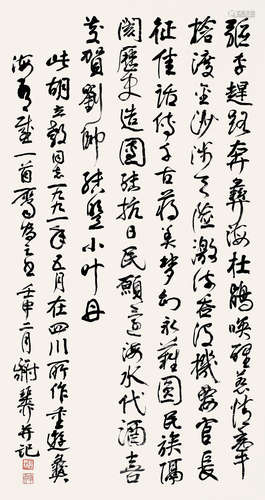 驱车赶路奔彝海杜鹃唤醒意情牵
抢渡金沙涉天险激流吞没机要官长
征佳话传千古蒋美梦幻永难圆民族隔
阂历史造团结抗日民愿邀海水代酒喜
共贺刘帅结盟小叶丹
此胡立教同志一九九一年五月在四川所作重游彝
海有感一首属为之书壬申二月谢稚并记